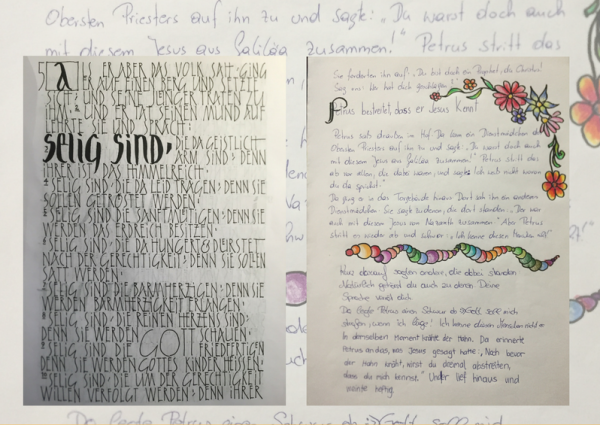 Obersten Priesters auf ihn zu und sagte: „Du warst doch auch
mit diesem Jesus aus Galiläa zusammen!“ Petrus stritt das
5 ALS ER ABER DAS VOLK SAH, GING
ER AUF EINEN BERG UND SETZTE
SICH; UND SEINE JÜNGER TRATEN ZU
IHM. UND ER TAT SEINEN MUND AUF
LEHRTE SIE UND SPRACH:
selig sind, DIE DA GEISTLICH
ARM SIND; DENN
IHRER IST DAS HIMMELREICH.
SELIG SIND, DIE DA LEID TRAGEN; DENN SIE
SOLLEN GETRÖSTET WERDEN.
SELIG SIND DIE SANFTMÜTIGEN; DENN SIE
WERDEN DAS ERDREICH BESITZEN.
SELIG SIND, DIE DA HUNGERT & DÜRSTET
NACH DER GERECHTIGKEIT; DENN SIE SOLLEN
SATT
SELIG SIND DIE BARMHERZIGEN; DENN SIE
WERDEN BARMHERZIGKEIT ERLANGEN.
SELIG SIND, DIE REINEN HERZENS SIND;
DENN SIE WERDEN GOTT SCHAUEN.
SELIG SIND DIE FRIEDFERTIGEN
DENN SIE WERDEN GOTTES KINDER HEISSEN.
SELIG SIND, DIE UM DER GERECHTIGKEIT
WILLEN VERFOLGT WERDEN; DENN IHRER
Sie forderten ihn auf: „Du bist doch ein Prophet, du Christus!
Sag uns: Wer hat dich geschlagen
Petrus bestreitet, dass er Jesus kennt
Petrus saß draußen im Hof. Da kam ein Dienstmädchen des
Obersten Priesters auf ihn zu und sagte: „Du warst doch auch
mit diesem Jesus aus Galiläa zusammen!“ Petrus stritt das
ab vor allen, die dabei waren, und sagte: „Ich weiß nicht wovon
du da sprichst.“
Da ging er in das Torgebäude hinein. Dort sah ihn ein anderes
Dienstmädchen. Sie sagte zu denen, die dort standen: „Der war
auch mit diesem Jesus von Nazaret zusammen.“ Aber Petrus
stritt es wieder ab und schwor: „Ich kenne diesen Mann nicht!“
Kurz darauf sagten andere, die dabei standen:
„Natürlich gehörst du auch zu denen. Deine
Sprache verrät dich.
Da legte Petrus einen Schwur ab: „Gott soll mich
strafen, wenn ich lüge! Ich kenne diesen Menschen nicht!“
In demselben Moment krähte der Hahn. Da erinnerte
Petrus an das, was Jesus gesagt hatte: „Noch bevor
der Hahn kräht, wirst du dreimal abstreiten,
dass du mich kennst.“ Und er lief hinaus und
weinte heftig.
Da legte Petrus einen Schwur ab: „Gott soll mich